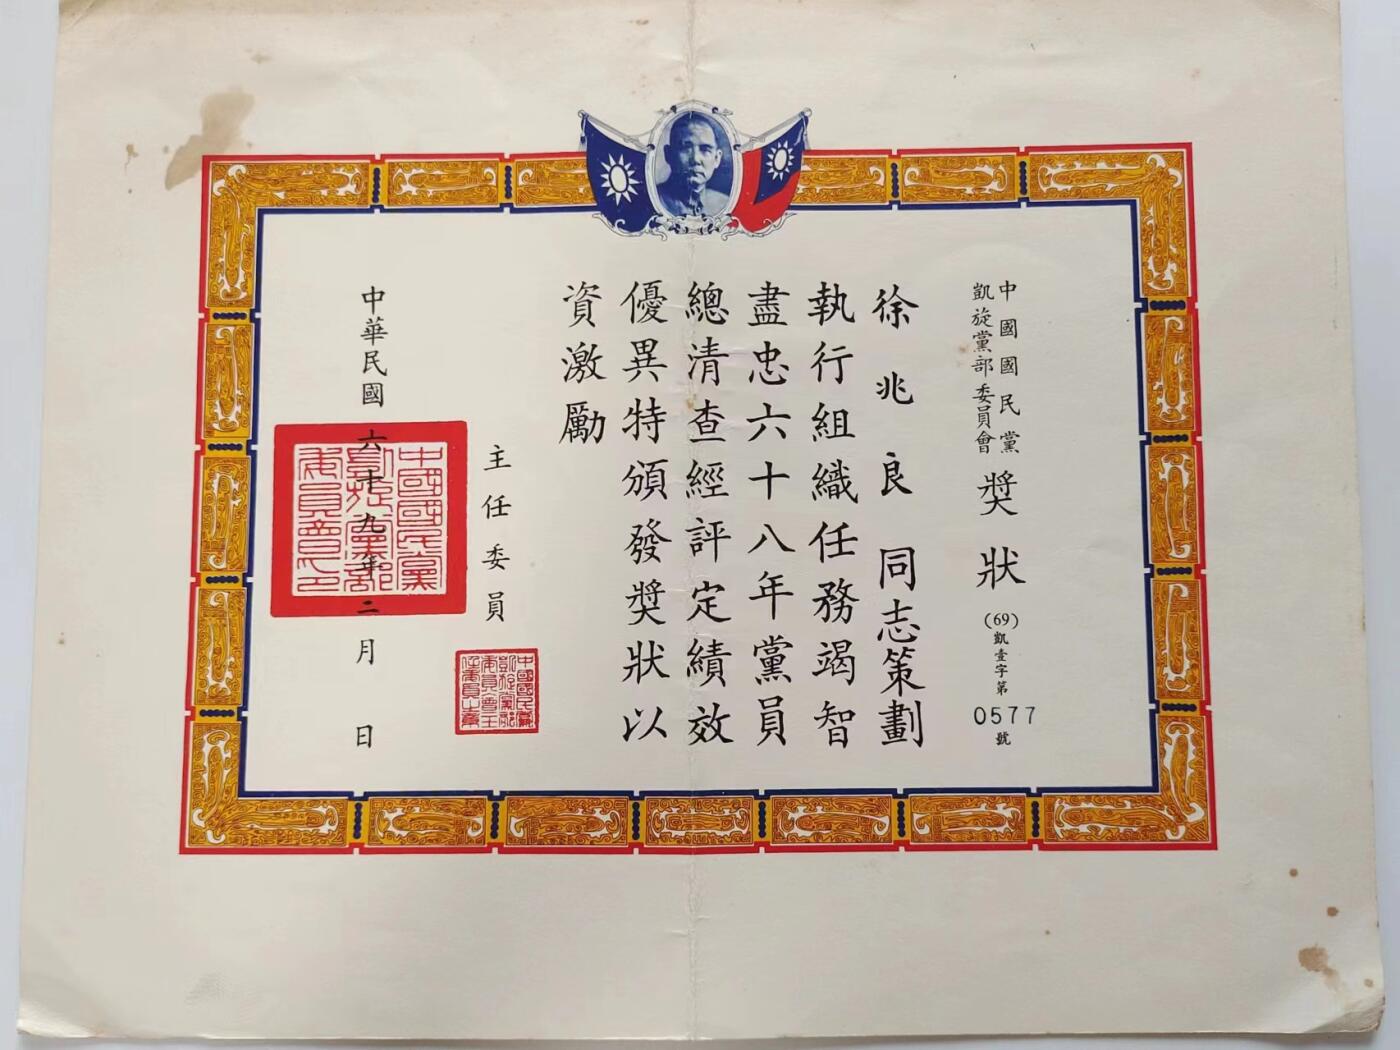 中國國民黨
凱旋黨部委員會
獎狀
(69)凱壹字第0577號
徐兆良同志策劃
執行組織任務竭智
盡忠六十八年黨員
總清查經評定績效
優異特頒發獎狀以
資激勵
主任委員
中華民國六十九年二月 日
中國國民黨
凱旋黨部
委員會印